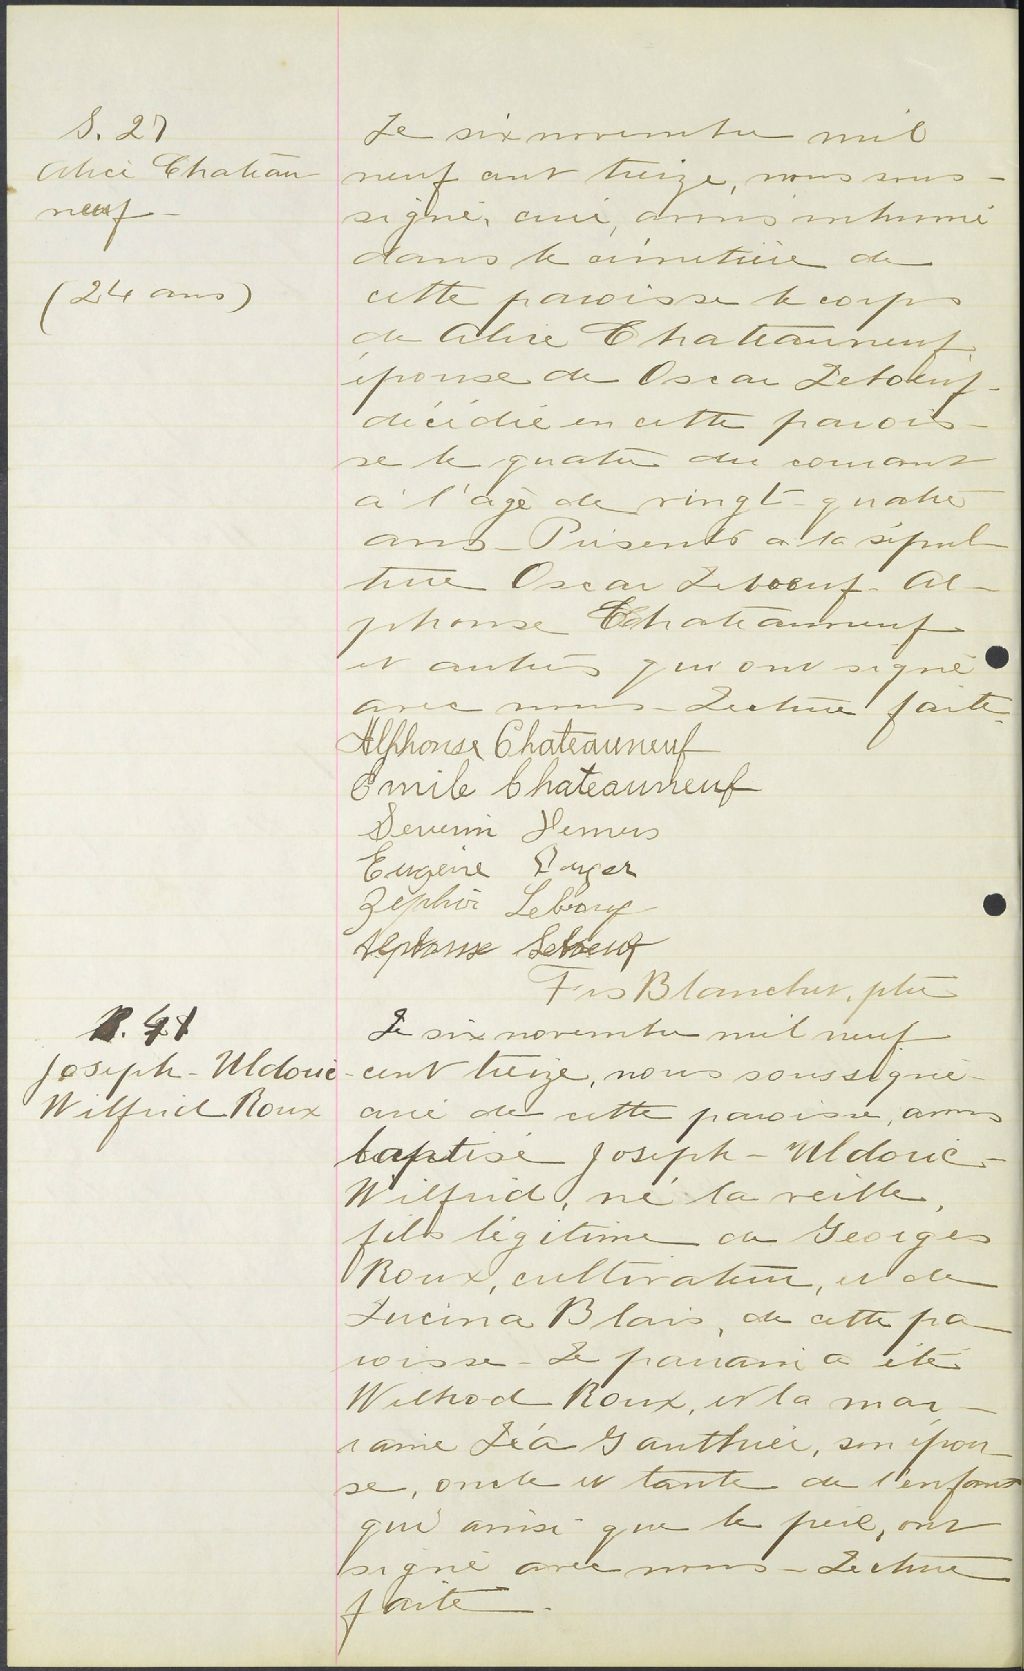 S. 27
Alice Chateau
neuf -
(24 ans)
Le six novembre mil
neuf cent treize, nous sous-
signé, curé, avons inhumé
dans le cimetière de
cette paroisse le corps
de Alice Chateauneuf
épouse de Oscar Leboeuf -
décédée en cette parois-
se le quatre du courant
à l'âge de vingt-quatre
ans - Présents à la sépul
ture Oscar Leboeuf - Al-
phonse Chateauneuf
et autres qui ont signé
avec nous - Lecture faite.
Alphonse Chateauneuf
Emile Chateauneuf
Severin
Eugène
Zéphir Leboeuf
Alphonse Leboeuf
Frs Blanchet, ptre
B. 41
Joseph - Uldoric -
Wilfrid Roux
Le six novembre mil neuf
cent treize, nous soussigné -
curé de cette paroisse, avons
baptisé Joseph - Uldoric -
Wilfrid, né la veille,
fils légitime de Georges
Roux, cultivateur, et de
Lucina Blais, de cette pa-
roisse - Le parrain a été
Wilhod Roux, et la mar-
raine Léa Gauthier, son épou-
se, oncle et tante de l'enfant
qui ainsi que le père, ont
signé avec nous - Lecture
faite -